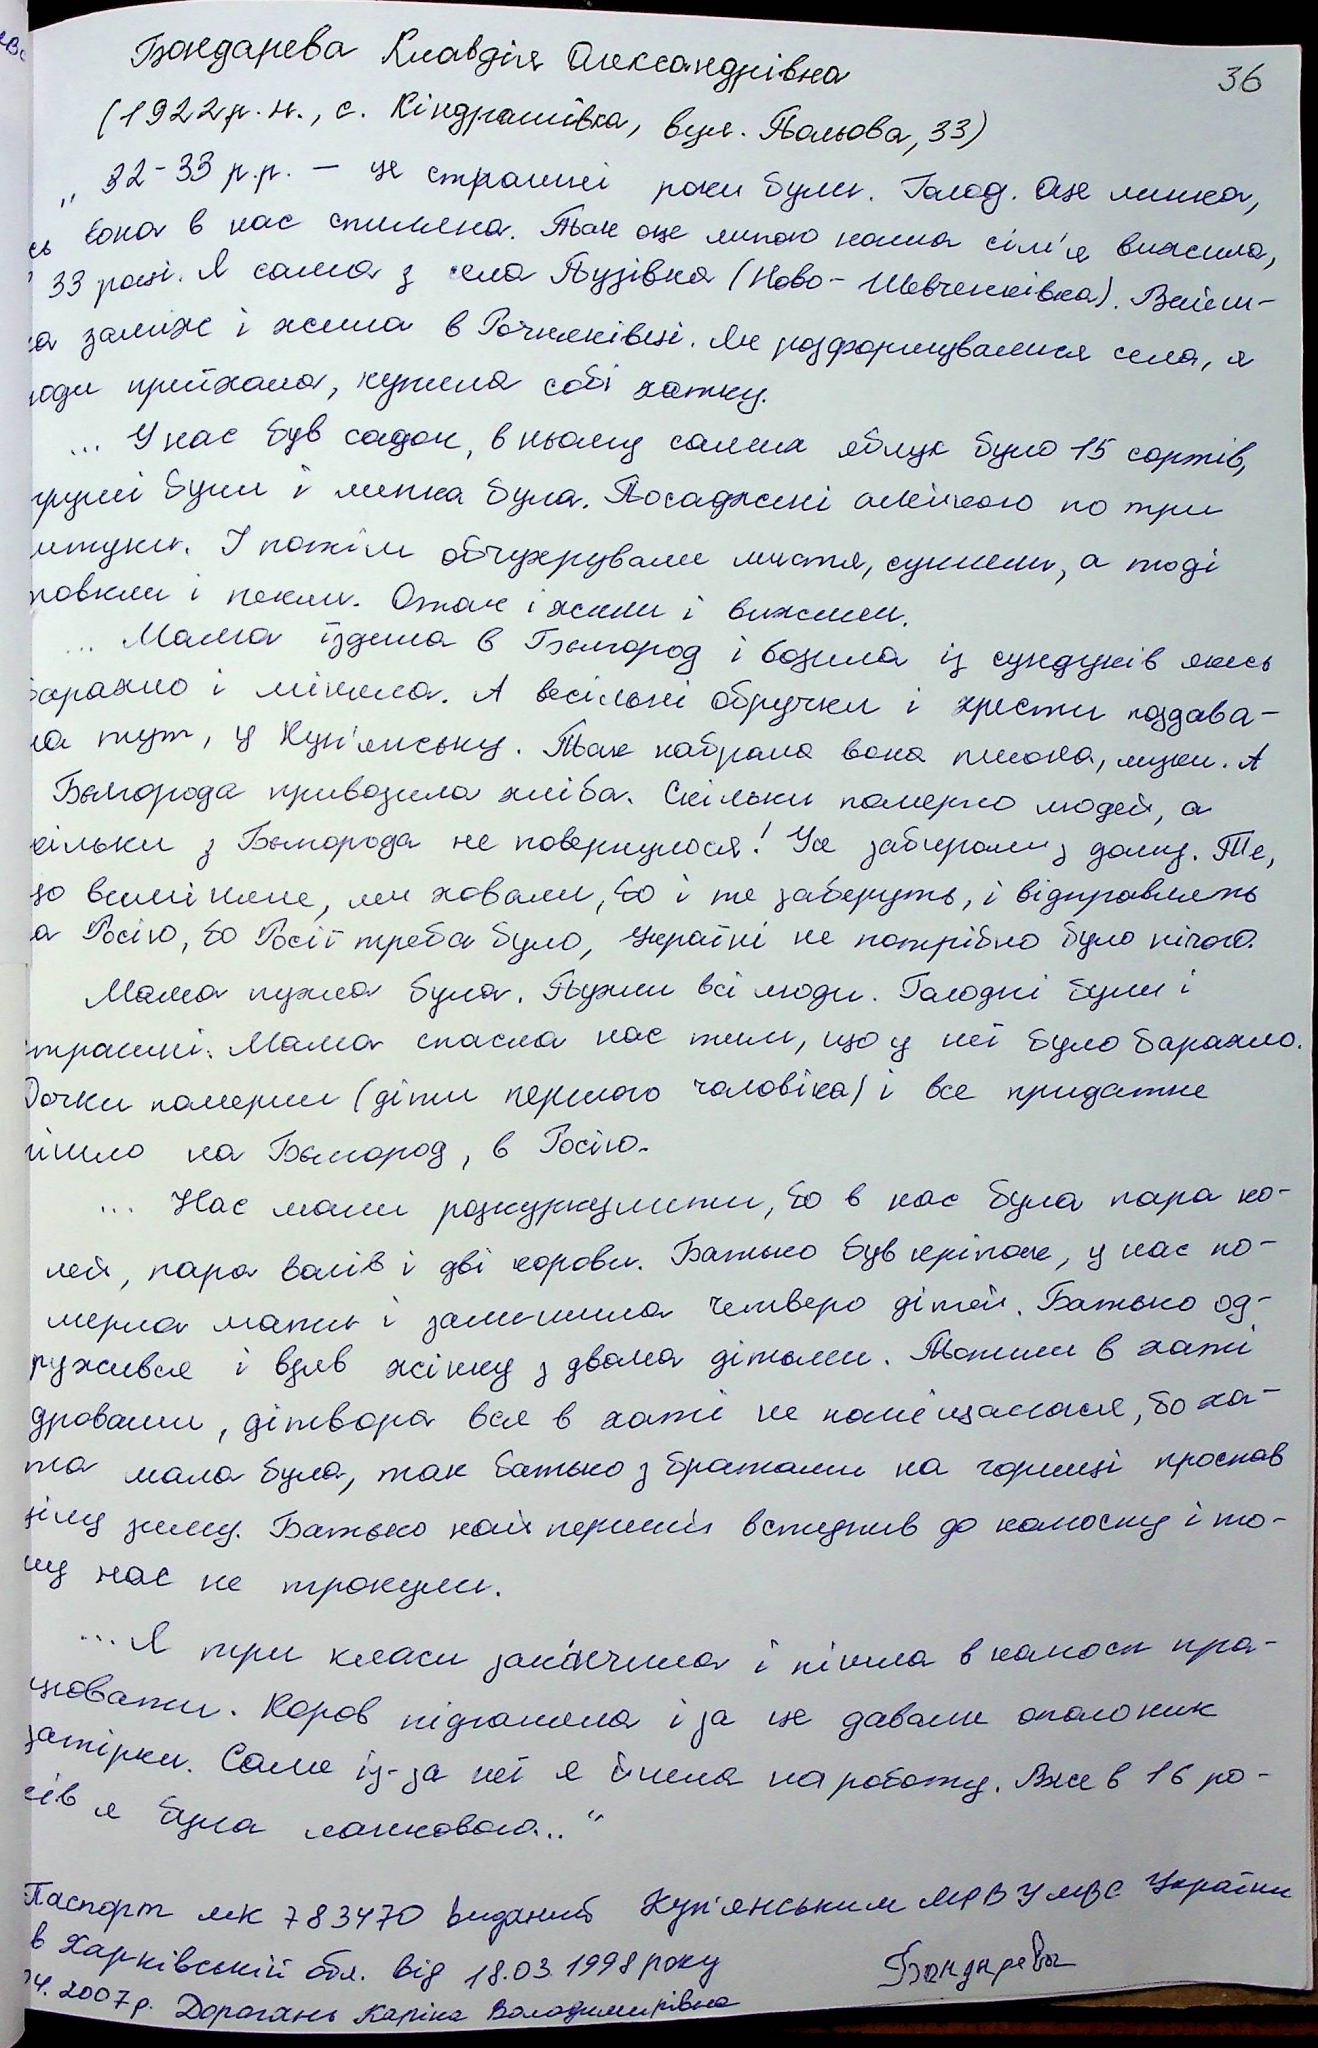 36
Бондарева Клавдія Олександрівна
(1922 р. н., с. Кіндрашівка, вул. Польова, 33)
„ 32-33 р.р. — це страшні роки були. Голод. Оце липка,
сь вона в нас спиляна. Так оце липою наша сім'я вижила,
33 році. Я сама з села Пузівка (Ново-Шевченківка). Вийш-
ла заміж і жила в Рочняківці. Як розформувалися села, я
юди приїхала, купила собі хатку.
... У нас був садок, в ньому самих яблук було 15 сортів,
груші були і липка була. Посаджені алейкою по три
штуки. І потім обчухрували листя, сушили, а тоді
товкли і пекли. Отак і жили і вижили.
... Мама їздила в Бєлгород і возила із сундуків якесь
барахло і міняла. А весільні обручки і хрести поздава-
ла тут, у Куп'янську. Так набрала вона пшона, муки. А
Бєлгорода привозила хліба. Скільки померло людей, а
кільки з Бєлгорода не повернулося! Усе забирали з дому. Те,
що виміняне, ми ховали, бо і те заберуть, і відправлять
а Росію, бо Росії треба було, Україні не потрібно було нічого.
Мама пухла була. Пухли всі люди. Голодні були і
страшні. Мама спасла нас тим, що у неї було барахло.
Дочки померли (діти першого чоловіка) і все придатне
пішло на Бєлгород, в Росію.
... Нас мали розкуркулити, бо в нас була пара ко-
ней, пара волів і дві корови. Батько був кріпак, у нас по-
мерла мати і залишила четверо дітей. Батько од-
ружився і взяв жінку з двома дітьми. Топили в хаті
дровами, дітвора вся в хаті не поміщалася, бо ха-
та мала була, так батько з братами на горищі проспав
цілу зиму. Батько найперший вступив до колоспу і то-
му нас не трокули.
... Я три класи закінчила і пішла в колосп пра-
цювати. Коров підганяла і за це давали ополоник
затірки. Саме із-за неї я йшла на роботу. Вже в 16 ро-
ків я була ланковою..."
Паспорт МК 783470 виданий Куп'янським МРВ УМВС України
в Харківській обл. від 18.03.1998 року
Бондарева
04. 2007 р. Дорогань Каріна Володимирівна